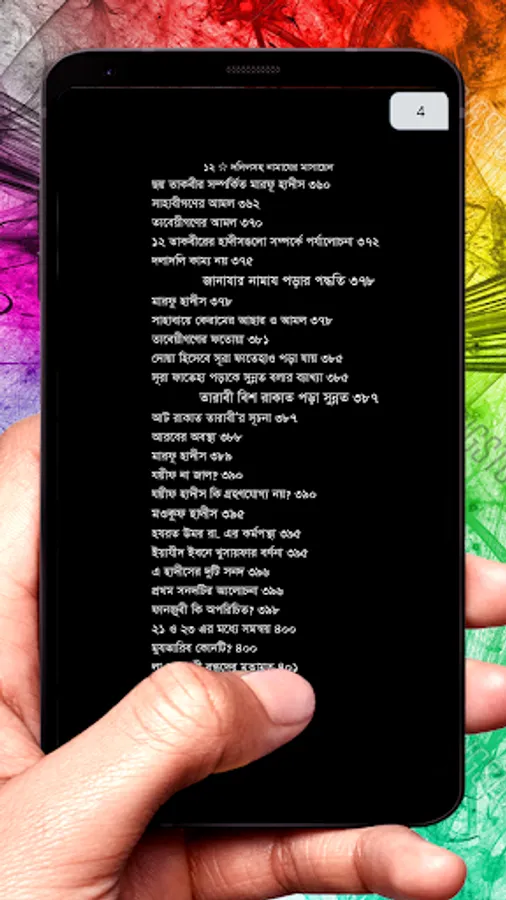 4
১২ ☆ দলিলসহ নামাযের মাসায়েল
ছয় তাকবীর সম্পর্কিত মারফূ হাদীস ৩৬০
সাহাবীগণের আমল ৩৬২
তাবেয়ীগণের আমল ৩৭০
১২ তাকবীরের হাদীসগুলো সম্পর্কে পর্যালোচনা ৩৭২
দলাদলি কাম্য নয় ৩৭৫
জানাযার নামায পড়ার পদ্ধতি ৩৭৮
মারফূ হাদীস ৩৭৮
সাহাবায়ে কেরামের আছার ও আমল ৩৭৮
তাবেয়ীগণের ফতোয়া ৩৮১
দোয়া হিসেবে সূরা ফাতেহাও পড়া যায় ৩৮৫
সূরা ফাতেহা পড়াকে সুন্নত বলার ব্যাখ্যা ৩৮৫
তারাবী বিশ রাকাত পড়া সুন্নত ৩৮৭
আট রাকাত তারাবী'র সূচনা ৩৮৭
আরবের অবস্থা ৩৮৮
মারফূ হাদীস ৩৮৯
যয়ীফ না জাল? ৩৯০
যয়ীফ হাদীস কি গ্রহণযোগ্য নয়? ৩৯০
মওকুফ হাদীস ৩৯৫
হযরত উমর রা. এর কর্মপন্থা ৩৯৫
ইয়াযীদ ইবনে খুসায়ফার বর্ণনা ৩৯৫
এ হাদীসের দুটি সনদ ৩৯৬
প্রথম সনদটির আলোচনা ৩৯৬
ফানজুবী কি অপরিচিত? ৩৯৮
২১ ও ২৩ এর মধ্যে সমন্বয় ৪০০
মুযতারিব কোনটি? ৪০০
৪০১